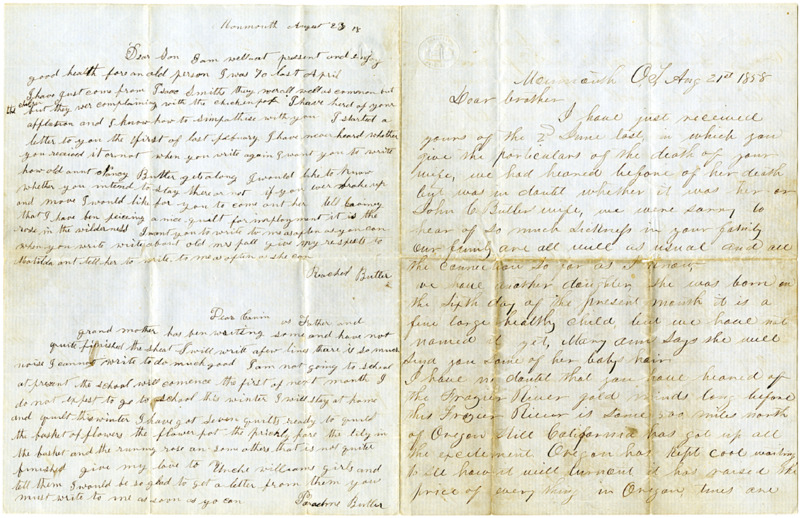 Monmouth August 23 18
Dear Son I am well at present and enjoy
good health for an old person I was 70 last April
I have just come from Smiths they wer all well as common
but they wer complaining with the chicken pox I have herd of your
and I know how to simpathise with you I started a
letter to you the first of last I have never heard whether
you received it or not when you write again I want you to write
how old aunt Butler gets along I would like to know
whether you intend to stay there or not if you ever brake up
and move I would like for you to com out her tell
that I have ben piecing a nice quilt for imployment it is the
rose in the wilderness I want you to write to me as often as you can
when you write write about old mr give my respects to
ant tell her to write to me as often as she can
Rachel Butler
Dear as Father and
grand mother has ben writing some and have not
quite finished the sheat I will write a few lines thare is so much
noise I cannot write to do much good I am not going to school
at present the school will comence the first of next month I
do not expect to go to school this winter I will stay at home
and quilt this winter I have got seven quilts ready to quild
the basket of flowers the flower pot the prickly pare the lily in
the basket and the running rose an som others that is not quite
finished give my love to Uncle williams girls and
tell them I would be so glad to get a letter from them you
must write to me as soon as yo can
Butler
Monmouth O.T Aug 21st 1858
Dear brother
I have just received
yours of the 2d June last, in which you
give the particulars of the death of your
wife, we had heared before of her death
but was in doubt whether it was her or
John C Butler wife, we were sorry to
hear of so much sickness in your family
Our family are all well as usual and all
the Connection so far as I know,
we have another daughter, she was born on
the sixth day of the present month it is a
fine large healthy child but we have not
named it yet, Mary Ann says she will
send you some of her babys hair
I have no doubt that you have heared of
the Frazier River gold minds long before
this Frazier River is some 300 miles north
of Oregon still California has got up all
the excitement Oregon has kept cool waiting
to see how it will turn out it has raised the
price of every thing in Oregon, times are